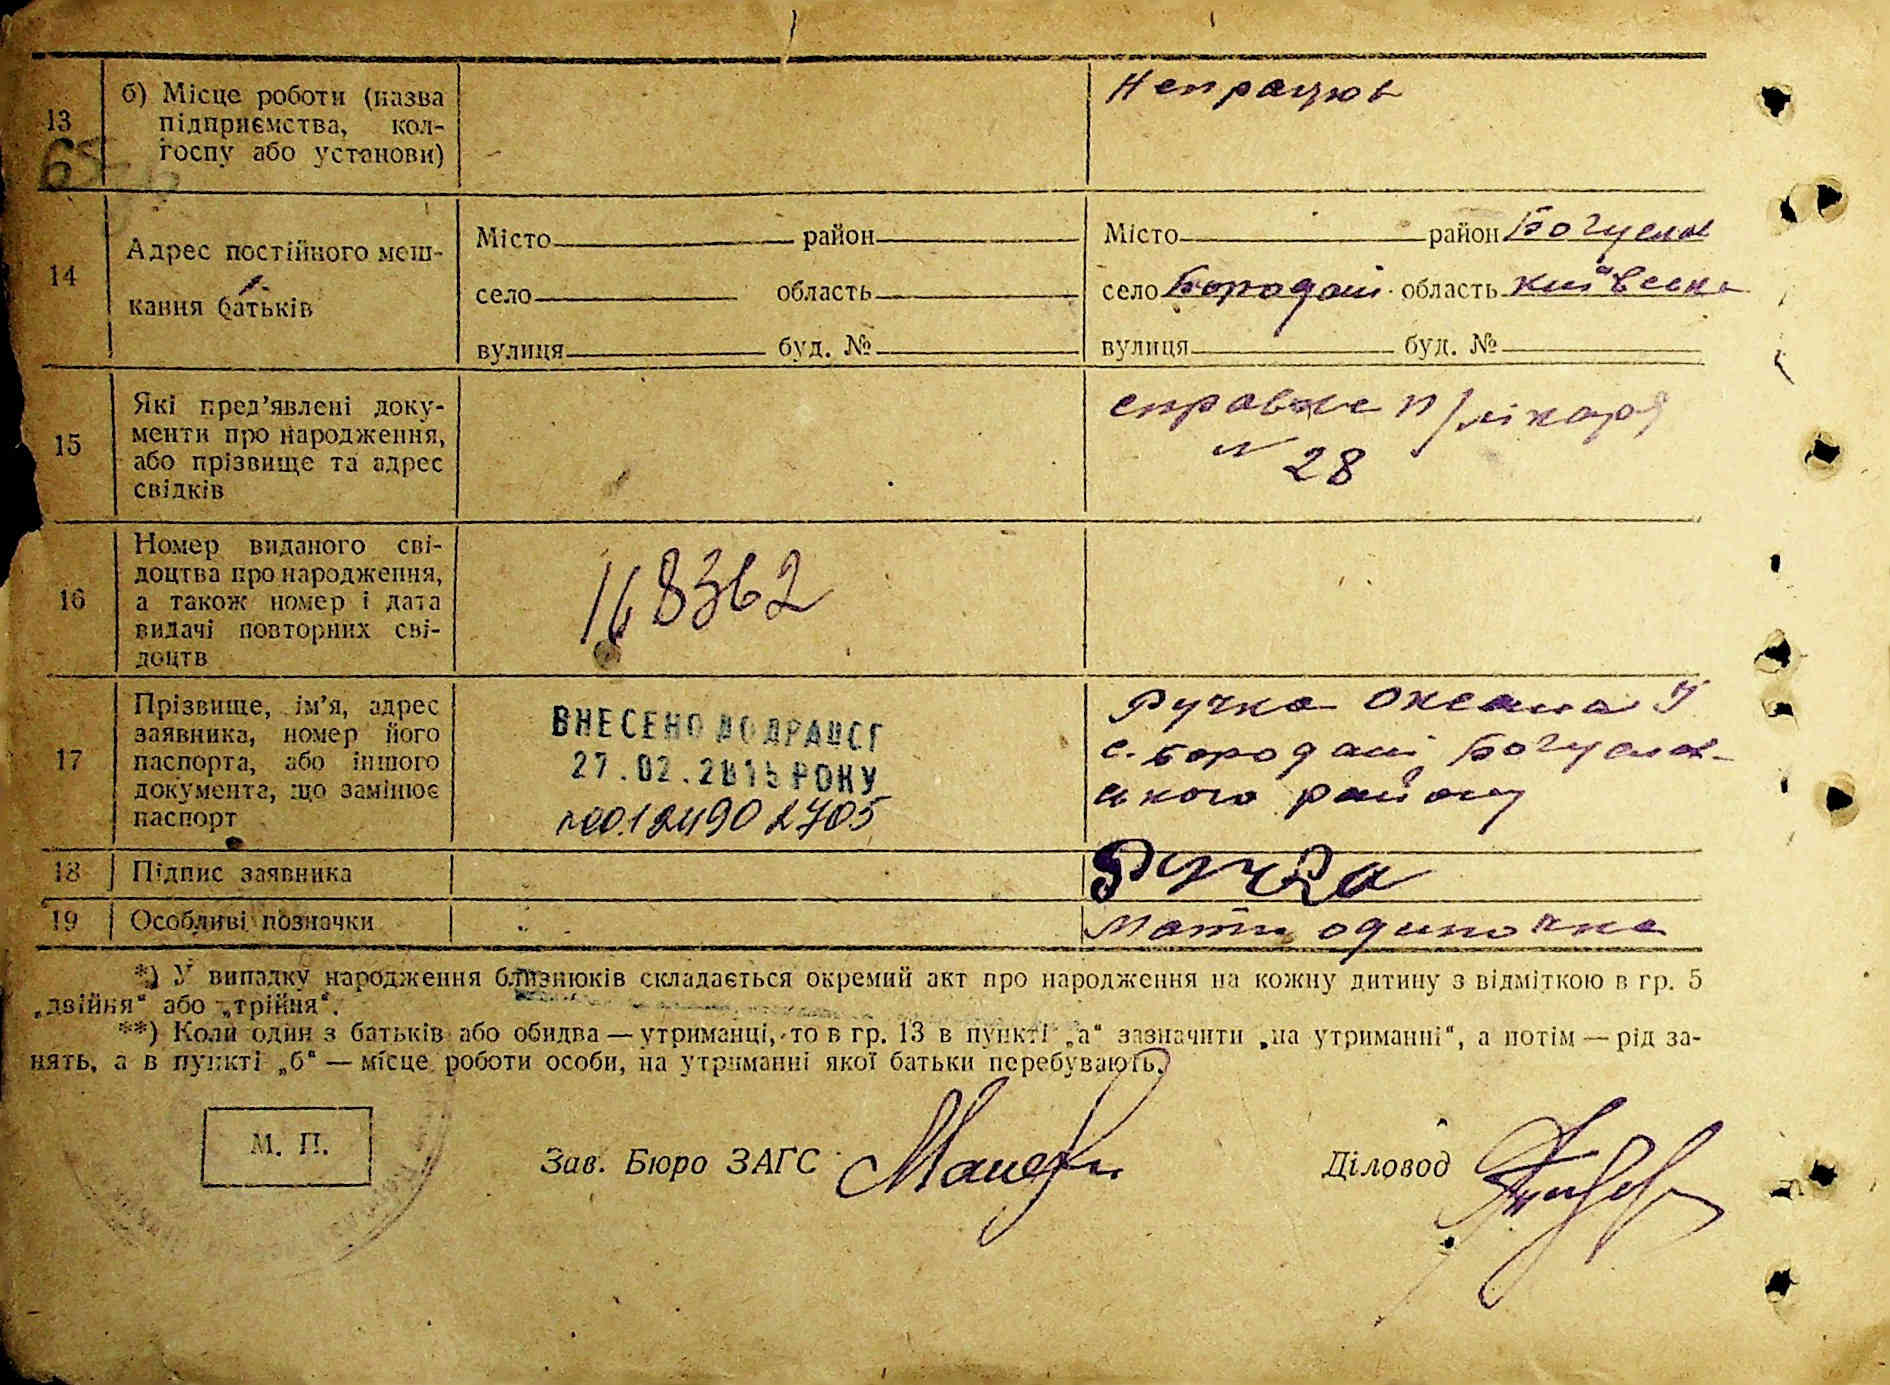 13
б) Місце роботи (назва
підприємства, кол-
госпу або установи)
Непрацює
65
14
Адрес постійного меш-
кання батьків
Місто район
село область
вулиця буд. №
Місто район Богуслав
село Бородані область Київська
вулиця буд. №
15
Які пред'явлені доку-
менти про народження,
або прізвище та адрес
свідків
справка п/лікаря
№ 28
16
Номер виданого сві-
доцтва про народження,
а також номер і дата
видачі повторних сві-
доцтв
168362
17
Прізвище, ім'я, адрес
заявника, номер його
паспорта, або іншого
документа, що замінює
паспорт
ВНЕСЕНО ДО ДРАЦСГ
27.02.2015 РОКУ
Ручка Оксана
с. Бородані Богуслав-
ського району
18
Підпис заявника
Ручка
19
Особливі позначки
Мати одиночка
*) У випадку народження близнюків складається окремий акт про народження на кожну дитину з відміткою в гр. 5
„двійня“ або „трійня“.
**) Коли один з батьків або обидва — утриманці, то в гр. 13 в пункті „а“ зазначити „на утриманні“, а потім — рід за-
нять, а в пункті „б“ — місце роботи особи, на утриманні якої батьки перебувають.
М. П.
Зав. Бюро ЗАГС
Діловод